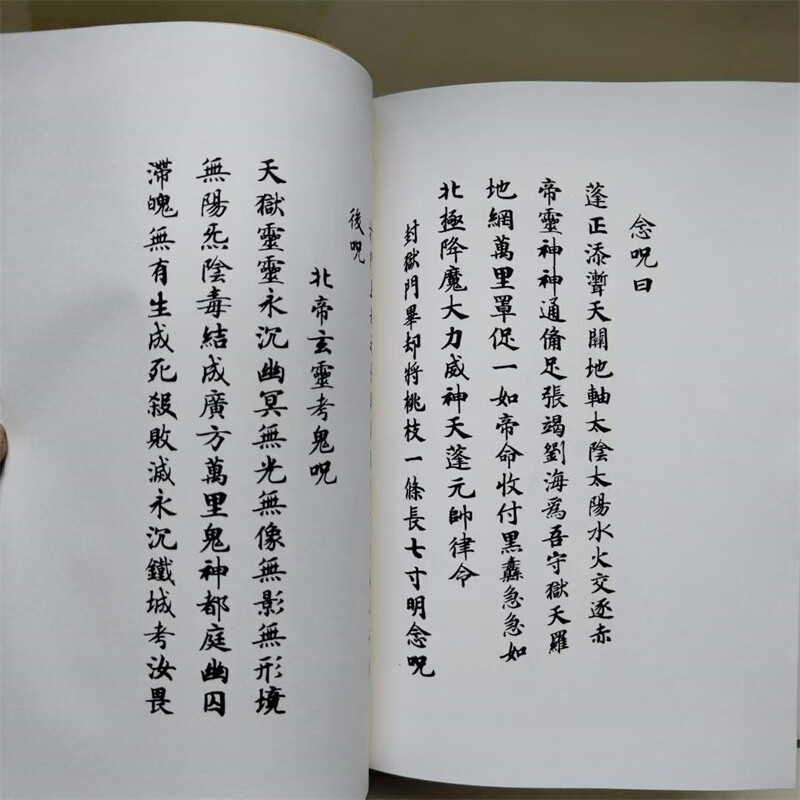 念呪曰
蓬正添漸天關地軸太陰太陽水火交逐赤
帝靈神神通俻足張竭劉海爲吾守獄天羅
地網萬里罩促一如帝命收付黑纛急急如
北極降魔大力威神天蓬元帥律令
封獄門畢却將桃枝一條長七寸明念呪
後呪
北帝玄靈考鬼呪
天獄靈靈永沉幽冥無光無像無影無形境
無陽炁陰毒結成廣方萬里鬼神都庭幽囚
滯魄無有生成死殺敗滅永沉鐵城考汝畏